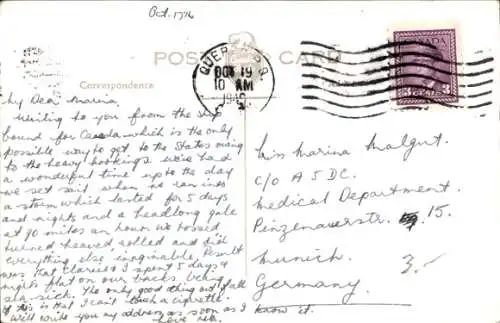 Oct. 17/46
POST CARD
Correspondence
QUEBEC P.Q.
OCT 19
10 AM
1946
CANADA
3 3
My Dear Marina,
Writing to you from the ship
bound for Canada which is the only
possible way to get to the States owing
to the heavy bookings. We've had
a wonderful time up to the day
we set sail when we ran into
a storm which lasted for 5 days
and nights and a headlong gale
at 90 miles an hour. We tossed
turned heaved, rolled and did
everything else imaginable. Result
was that Clarice & I spent 5 days &
nights flat on our backs being
sea-sick. The only good thing out of all
of this is that I can't touch a cigarette.
Will write you my address as soon as I know it.
Love
Miss Marina Malgut.
c/o A5DC.
Medical Department.
Pinzenauerstr. 15.
Munich.
Germany.
3.-